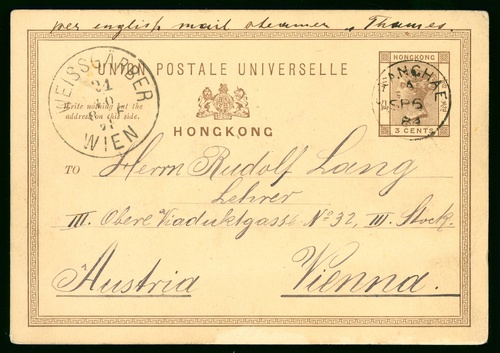 per english mail steamer "Thames"
UNION POSTALE UNIVERSELLE
HONGKONG
3 CENTS
SHANGHAE
A
SP 6
WEISSGÄRBER
WIEN
Write nothing but the
address on this side.
HONGKONG
TO Herrn Rudolf Lang
Lehrer
III. Obere Viaduktgasse No 32, III. Stock.
Austria Vienna.